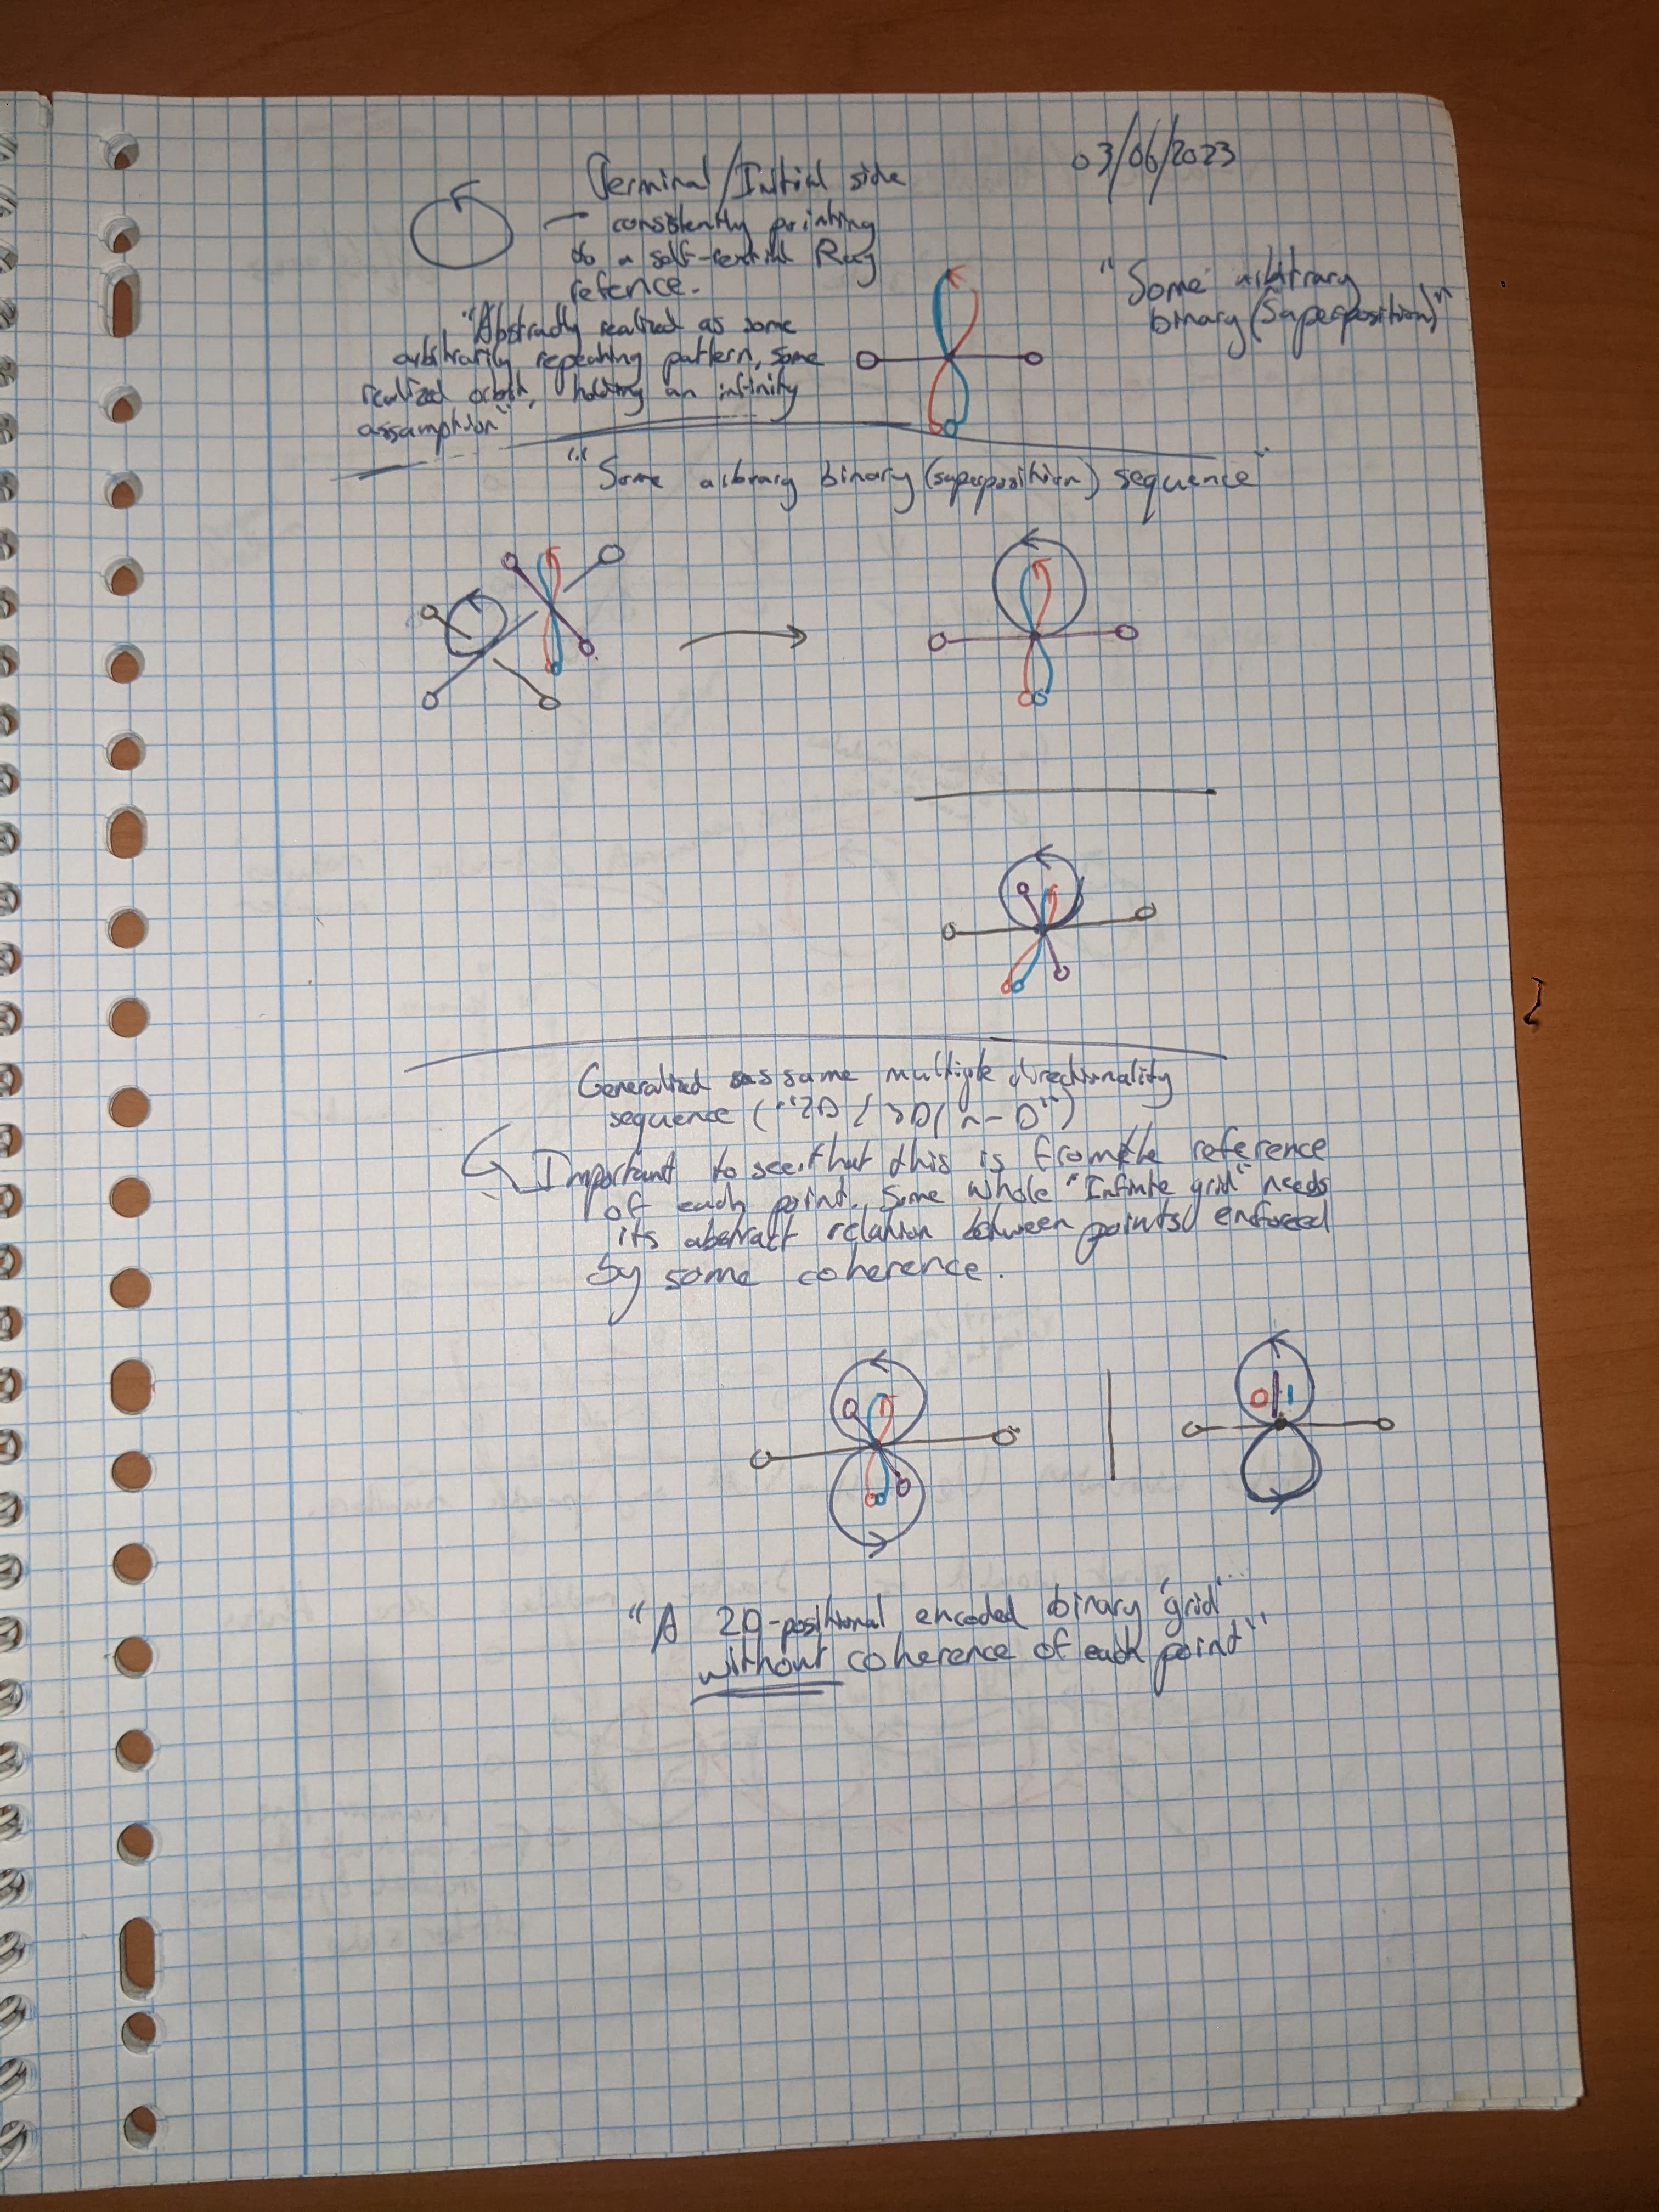 03/06/2023
Terminal/Initial side
— consistently pointing
to a self- Ray
refence.
"Abstractly realized as some
arbitrarily repeating pattern, some
realized orbit, holding an infinity
assumption"
"Some arbitrary
binary (superposition)"
"Some arbitrary binary (superposition) sequence"
Generalized as some multiple directionality
sequence ("2D / 3D / n-D")
Important to see that this is from the reference
of each point. Some whole "Infinite grid" needs
its abstract relation between points enforced
by some coherence.
0 1
"A 2D-positional encoded binary 'grid'...
without coherence of each point"